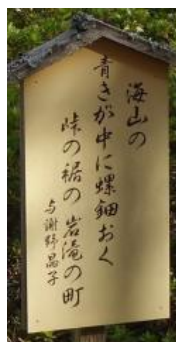 海山の
青きが中に螺鈿おく
峠の裾の岩滝の町
与謝野晶子